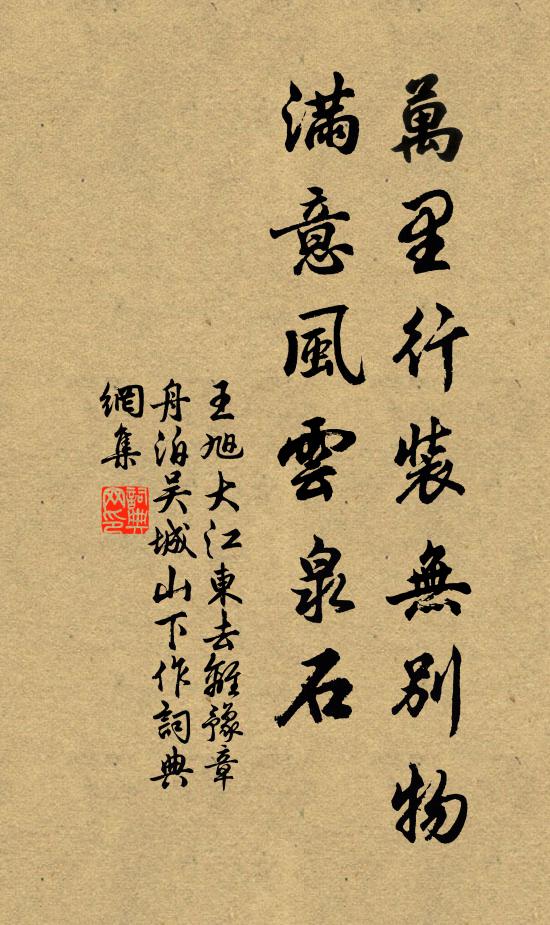 萬里行裝無別物
滿意風雲泉石
王旭大江東去離豫章
舟泊吴城山下作詞典
網集
詞典
网印